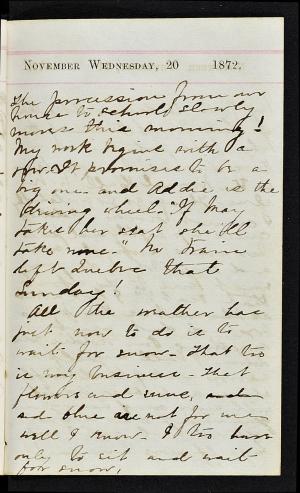 NOVEMBER WEDNESDAY, 20 1872.
The procession from our
house to school slowly
moves this morning!
My work begins with a
spur. It promises to be a
big one and Addie is the
"driving wheel." "If May
takes her seat she'll
take mine." No train
left Quebec that
Sunday!
All the mather has
just now to do is to
wait for snow - That too
is my business - That
flowers and , and
sd blue are not for me
well I know. I too have
only to sit and wait
for snow.